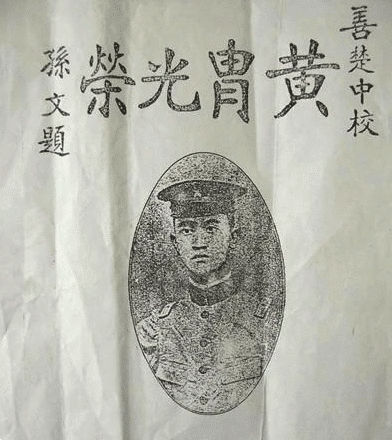 善楚中校
黄胄光榮
孫文題